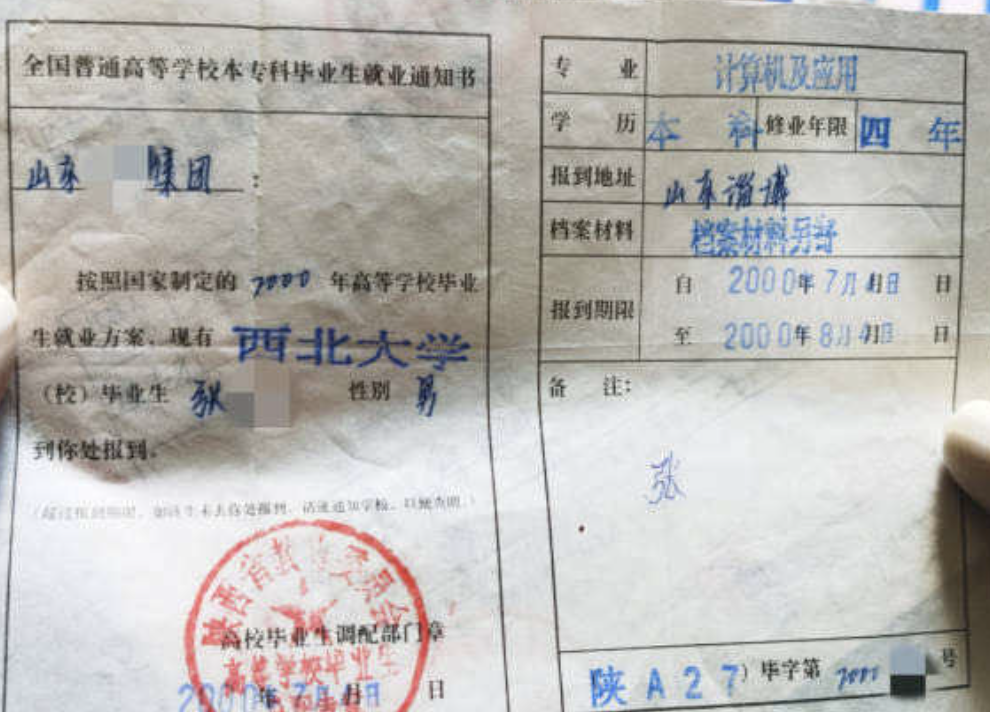 全国普通高等学校本专科毕业生就业通知书
山东 集团：
按照国家制定的 2000 年高等学校毕业
生就业方案，现有 西北大学
（校）毕业生 张 性别 男
到你处报到。
陕西省教育委员会
高校毕业生调配部门章
高等学校毕业生
2000年7月 日 日
专 业 计算机及应用
学 历 本 科 修业年限 四 年
报到地址 山东淄博
档案材料 档案材料另寄
报到期限 自 2000年7月1日 日
至 2000年8月1日 日
备 注：
张
陕A27）毕字第 2000 号